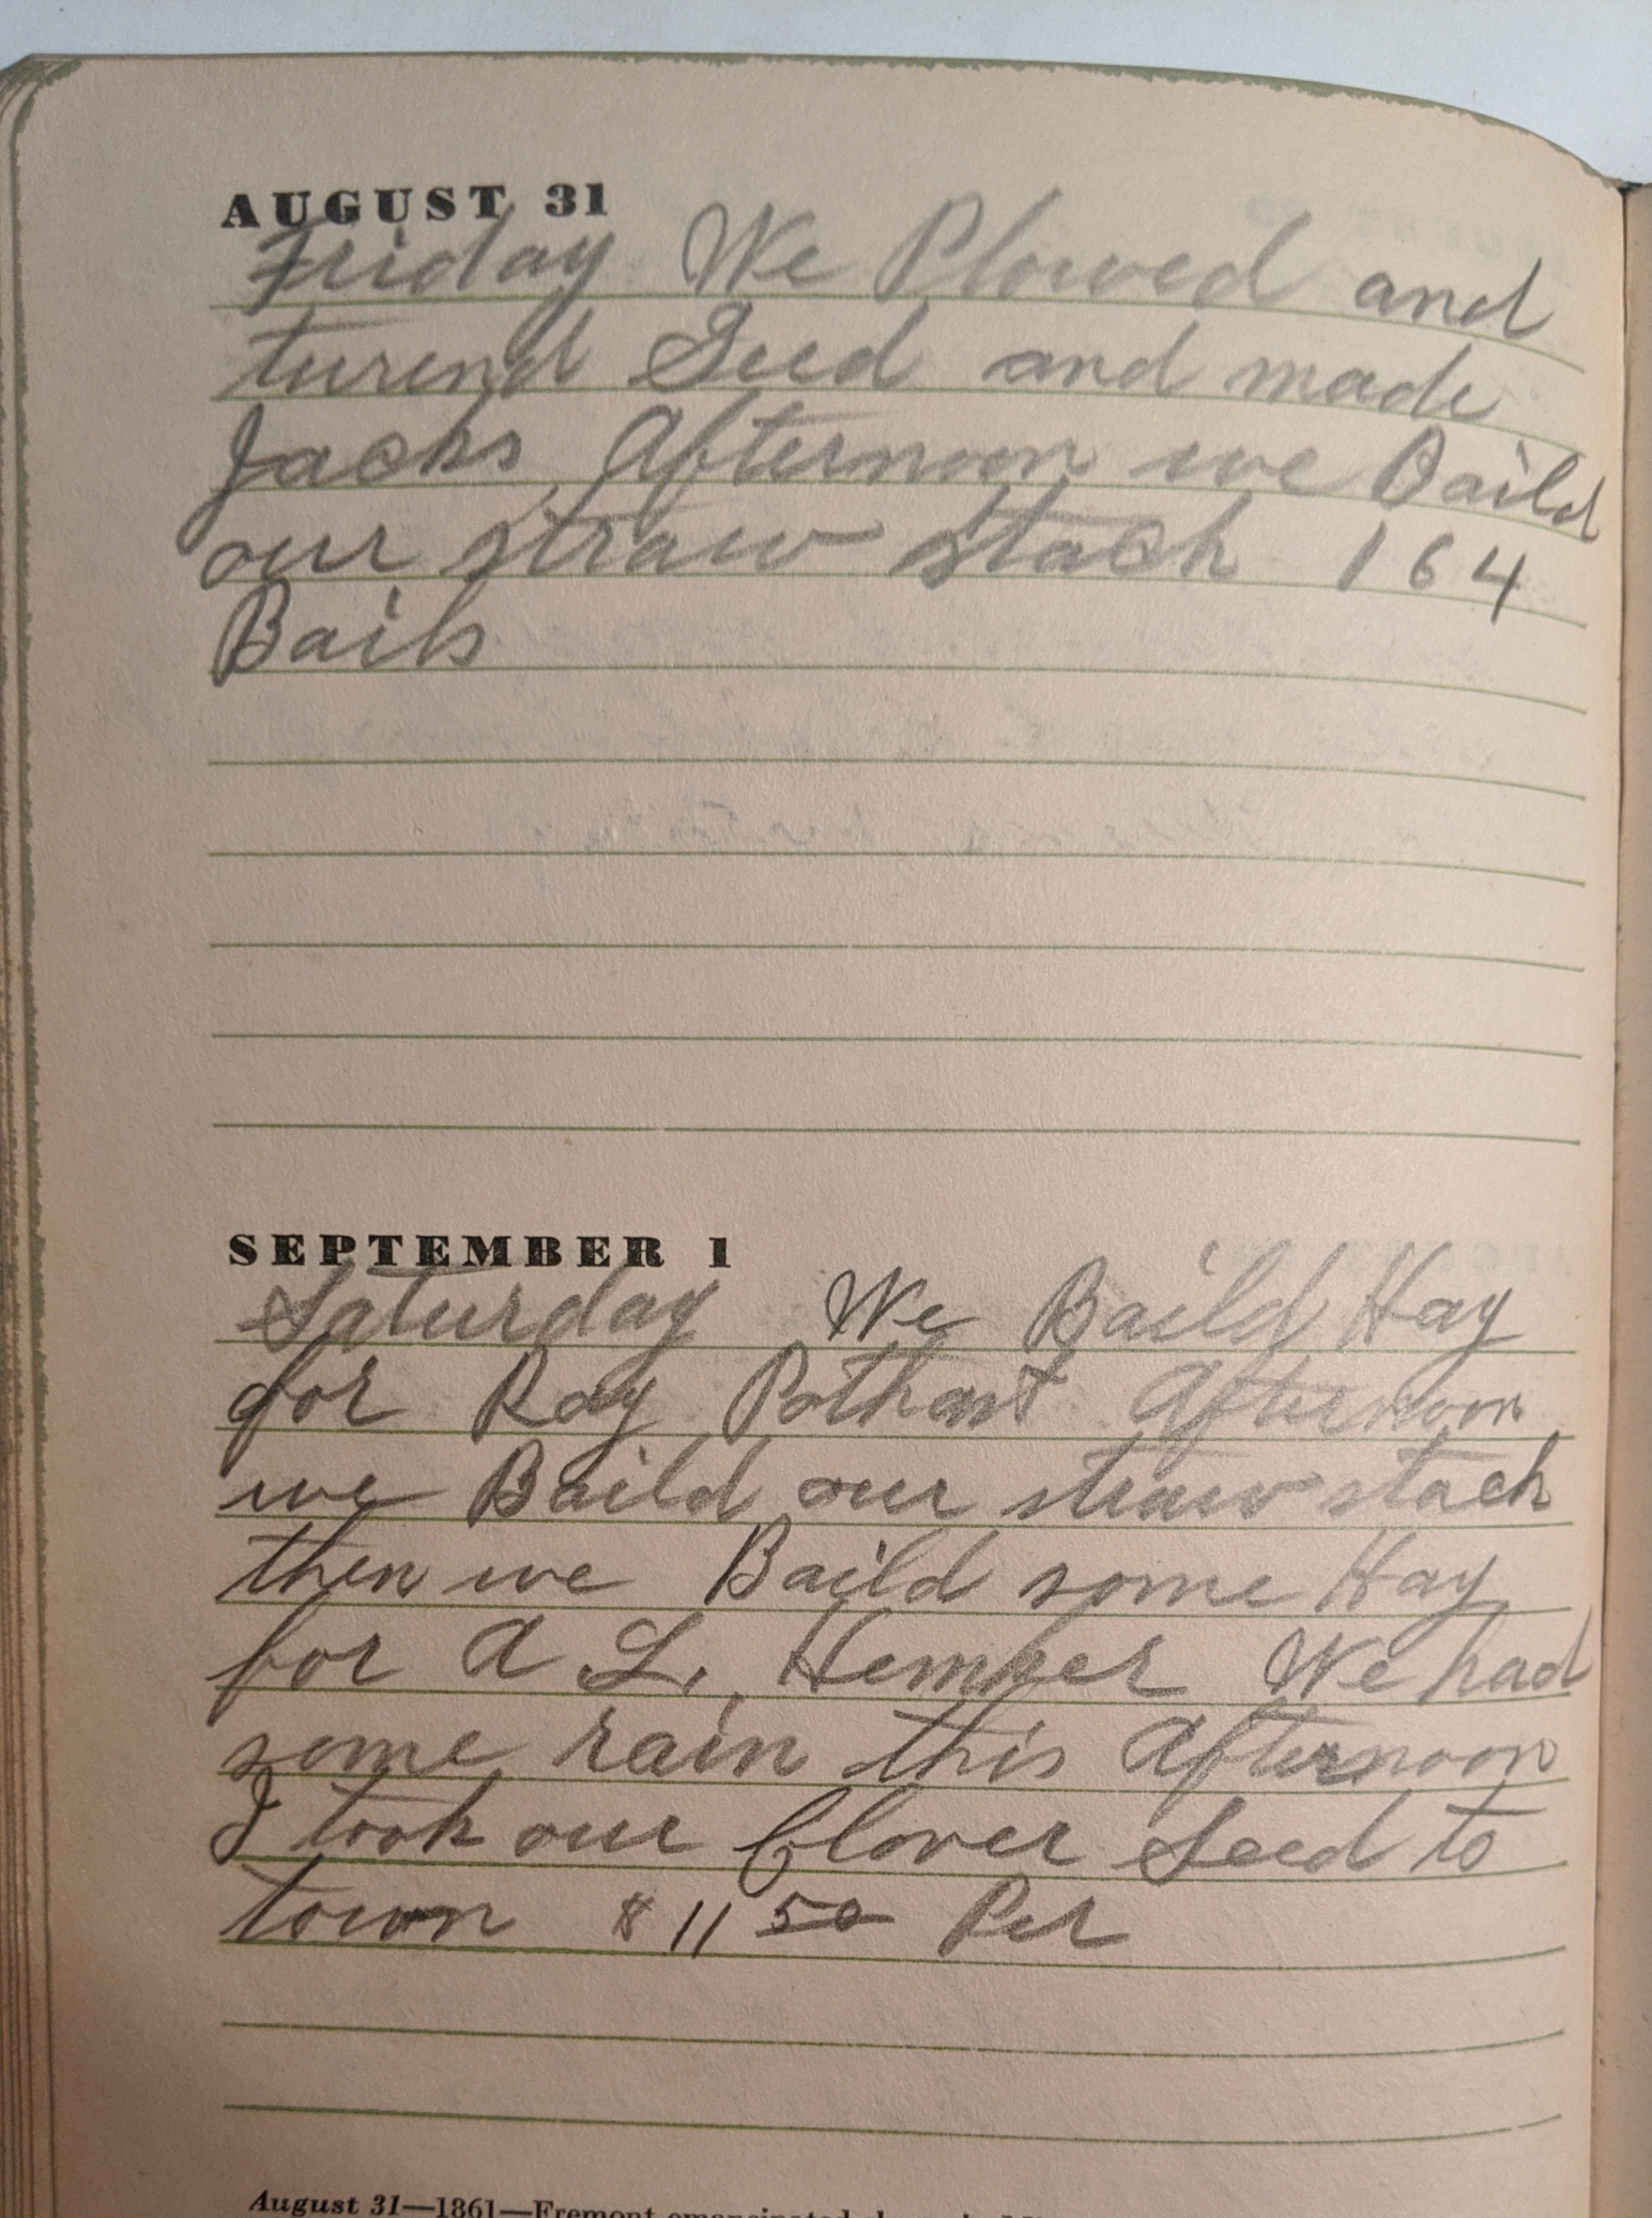 AUGUST 31
Friday We Plowed and
turend Seed and made
Jacks Afternoon we Baild
our straw stack 164
Bails
SEPTEMBER 1
Saturday We Baild Hay
for Ray Pothast Afternoon
we Baild our straw stack
then we Baild some Hay
for A L. Hemker We had
some rain this Afternoon
I took our Clover Seed to
town $11 50 Per
August 31—1861—Fremont emancipated